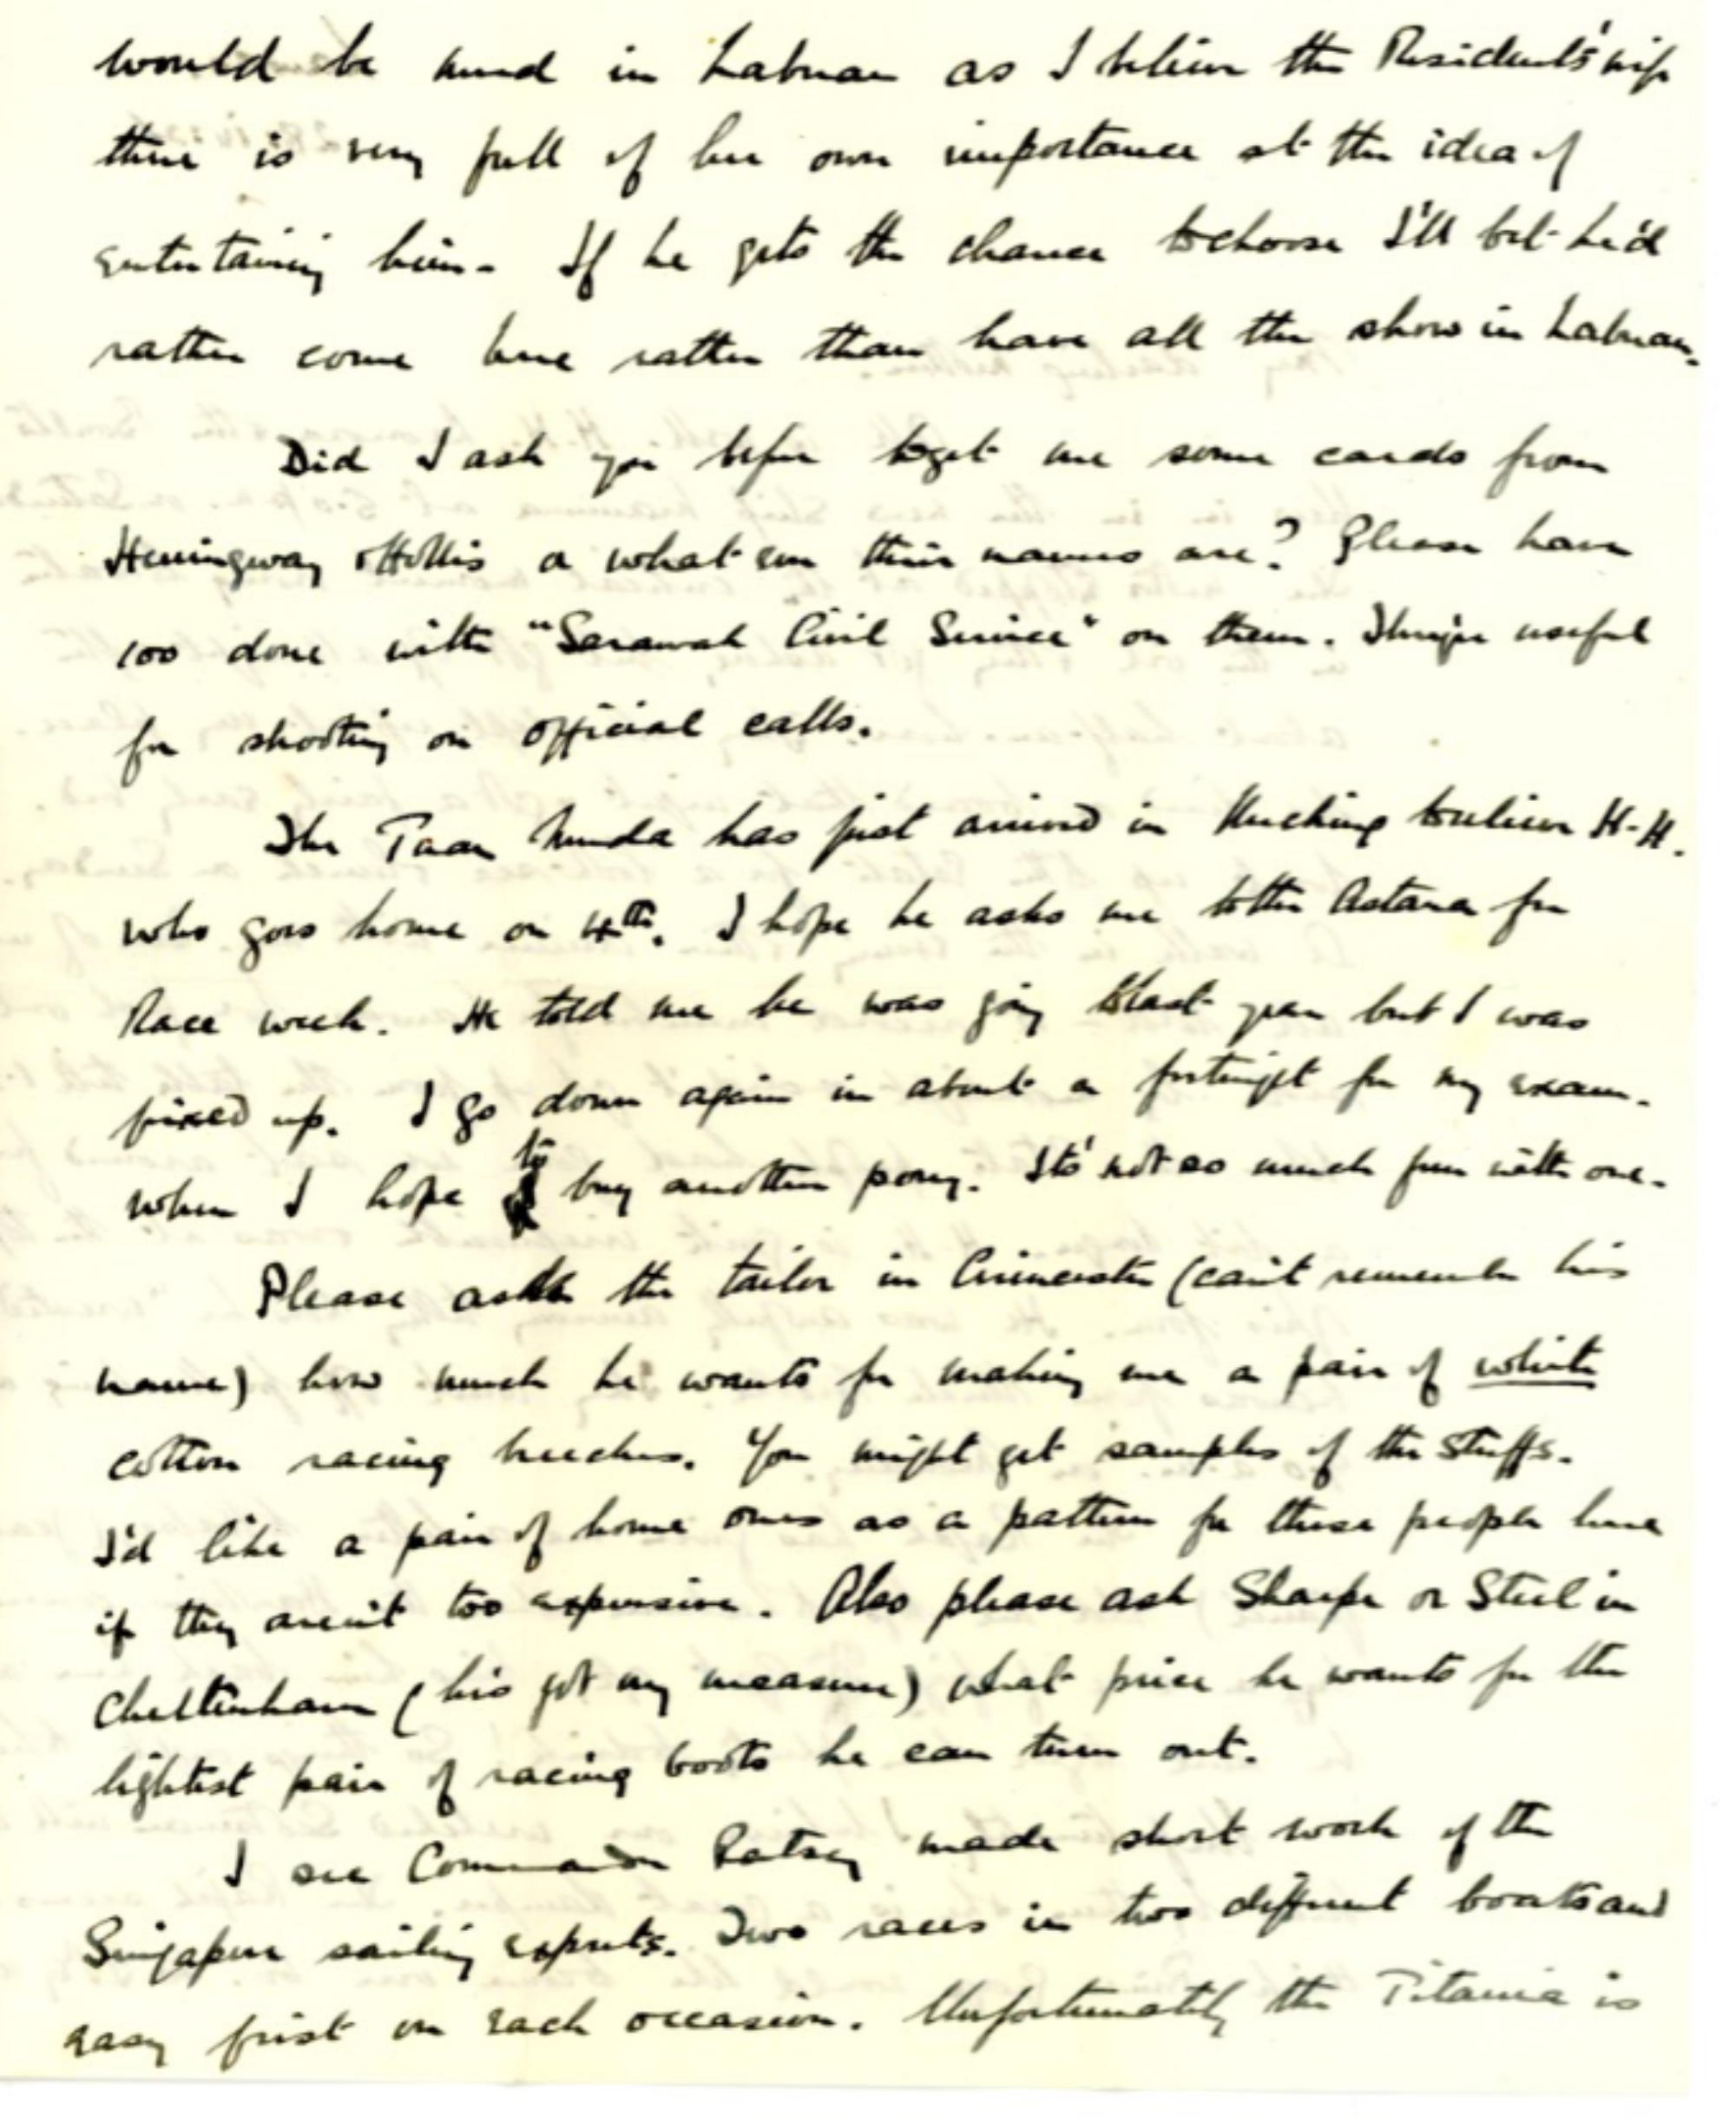 would be in Labuan as I believe the Residents' wife
there is very full of her own importance at the idea of
entertaining him. If he gets the chance to choose I'll bet he'd
rather come here rather than have all the show in Labuan.
Did I ask you before to get me some cards from
Hemingway & Hollis or what ever their names are? Please have
100 done with "Sarawak Civil Service" on them. useful
for shooting on official calls.
The Tuan Muda has just arrived in Kuching to relieve H.H.
who goes home on 4th. I hope he asks me to the Astana for
Race week. He told me he was going to last year but I was
fixed up. I go down again in about a fortnight for my exam.
when I hope to buy another pony. Its' not so much fun with one.
Please ask the tailor in Cirencester (can't remember his
name) how much he wants for making me a pair of white
cotton racing breeches. You might get samples of the stuffs.
I'd like a pair of home ones as a pattern for these people here
if they aren't too expensive. Also please ask Sharpe or Steel in
Cheltenham (his got my measure) what price he wants for the
lightest pair of racing boots he can turn out.
I see Commander Ratsey made short work of the
Singapore sailing experts. Two races in two different boats and
easy first on each occasion. Unfortunately the Titania is